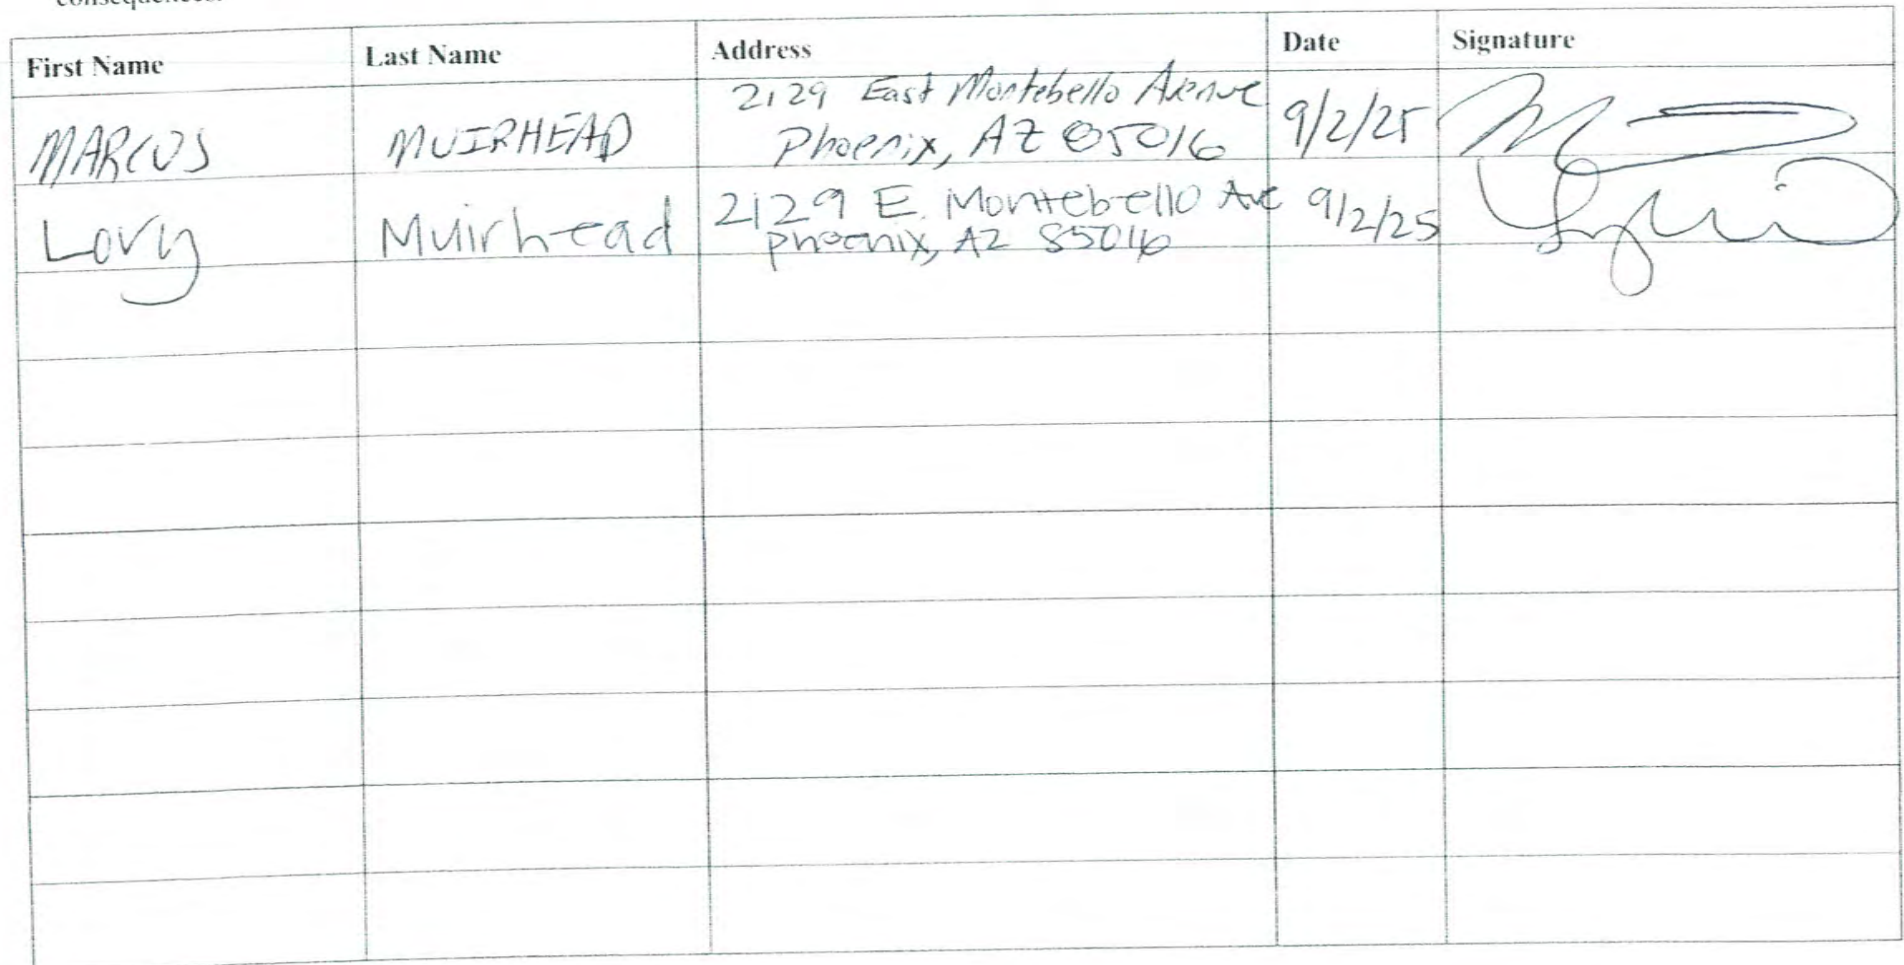 First Name Last Name Address Date Signature
MARCUS MUIRHEAD 2129 East Montebello Avenue 9/2/25
Phoenix, AZ 85016
Lory Muirhead 2129 E. Montebello Ave 9/2/25
phoenix, AZ 85016